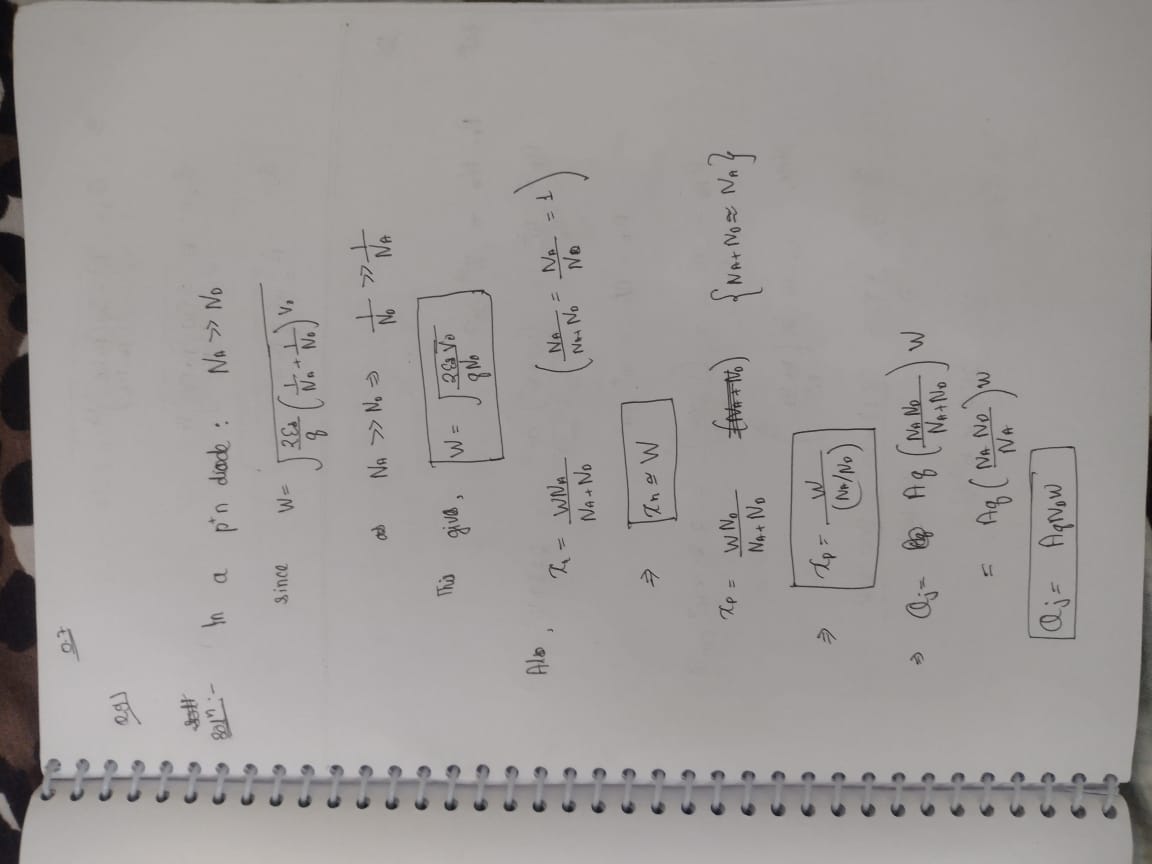 0.7
eg)
Solⁿ:- In a p⁺n diode : N_A >> N_D
since W = √(2ε_s/q (1/N_A + 1/N_D) V_0)
as N_A >> N_D ⇒ 1/N_D >> 1/N_A
This gives, W = √(2ε_s V_0 / qN_D)
Also, x_n = WN_A / (N_A + N_D) (N_A/(N_A + N_D) = N_A/N_D = 1)
⇒ x_n ≅ W
x_p = WN_D / (N_A + N_D) {N_A + N_D ≈ N_A}
⇒ x_p = W / (N_A/N_D)
⇒ Q_j = Aq (N_A N_D / (N_A + N_D)) W
= Aq (N_A N_D / N_A) W
Q_j = AqN_DW